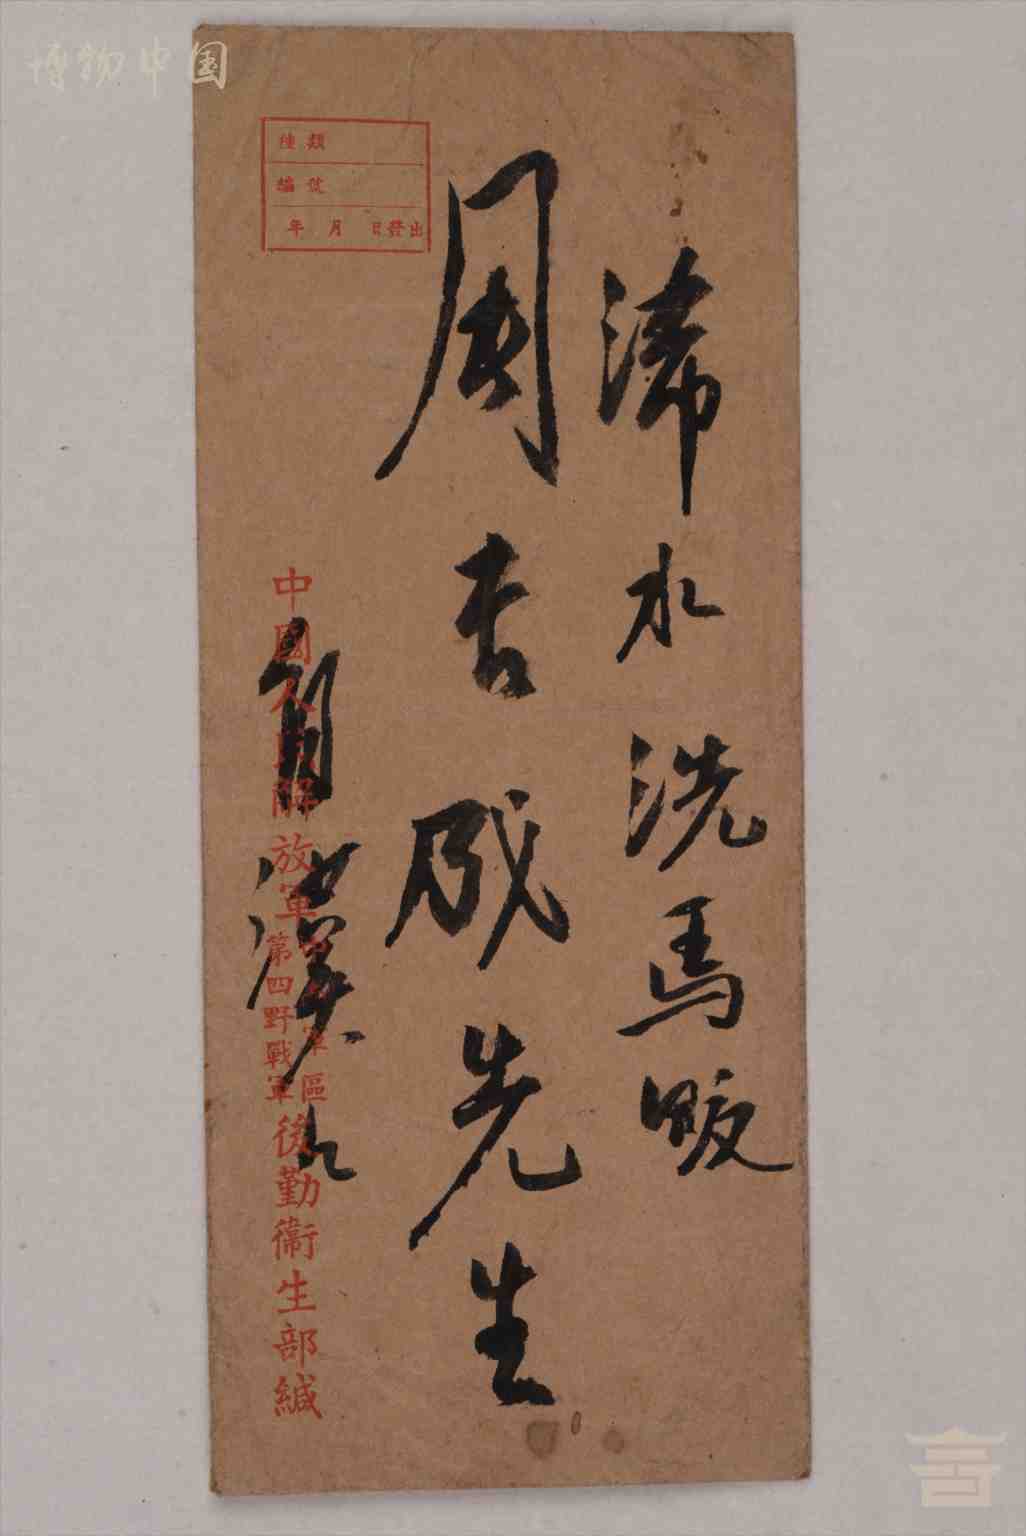 博物中国
浠水洗馬畈
周吉成先生
種類
編號
年 月 日發出
中國人民解放軍
中南軍區
第四野戰軍
後勤衛生部緘
自漢